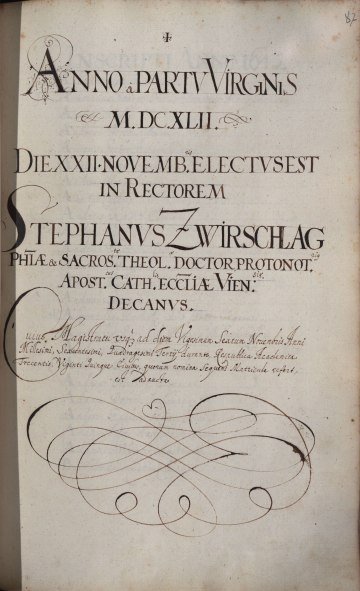 182
ANNO à PARTV VIRGINIS
M.DCXLII.
DIE XXII. NOVEMB. ELECTVS EST
IN RECTOREM
STEPHANVS ZWIRSCHLAG
PHIÆ & SACROS. THEOL. DOCTOR PROTONOT.
APOST. CATH. ECCLIÆ VIEN.
DECANVS.
Cuius Magistratu usq; ad diem Vigesimam Sextum Nouembris Anni
Millesimi, Sexcentesimi, Quadragesimi Tertij durante, Respublica Academica
Trecentis, Viginti Quinque Ciuibus, quorum nomina Sequens Matricula refert,
est